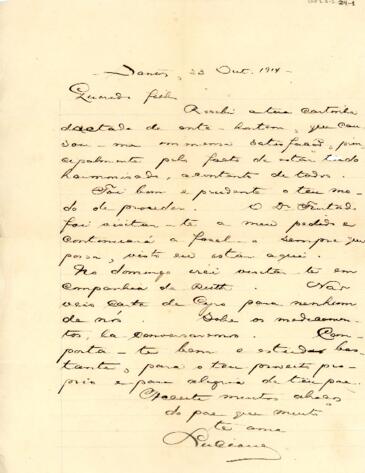 Santos, 23 Out. 1914
Querido filho
Recebi a tua cartinha
dactada de ante-hontem, que cau
sou-me immensa satisfação, prin
cipalmente pelo facto de estar tudo
harmonisado, a contento de todos.
Foi bem e prudente o teu mo-
do de proceder. O Dr. Furtado
foi visitar-te a meu pedido e
continuará a fazel-o sempre que
possa, visto eu estar aqui.
No domingo irei visitar-te em
companhia de Ruth. Não
veio carta de Cyro para nenhum
de nós. Sobre os medicamen-
tos, lá conversaremos. Com-
porta-te bem e estuda bas-
tante, para o teu proveito pro-
prio e para alegria de teu pae.
Acceite muitos abraços
do pae que muito
te ama
Luciano